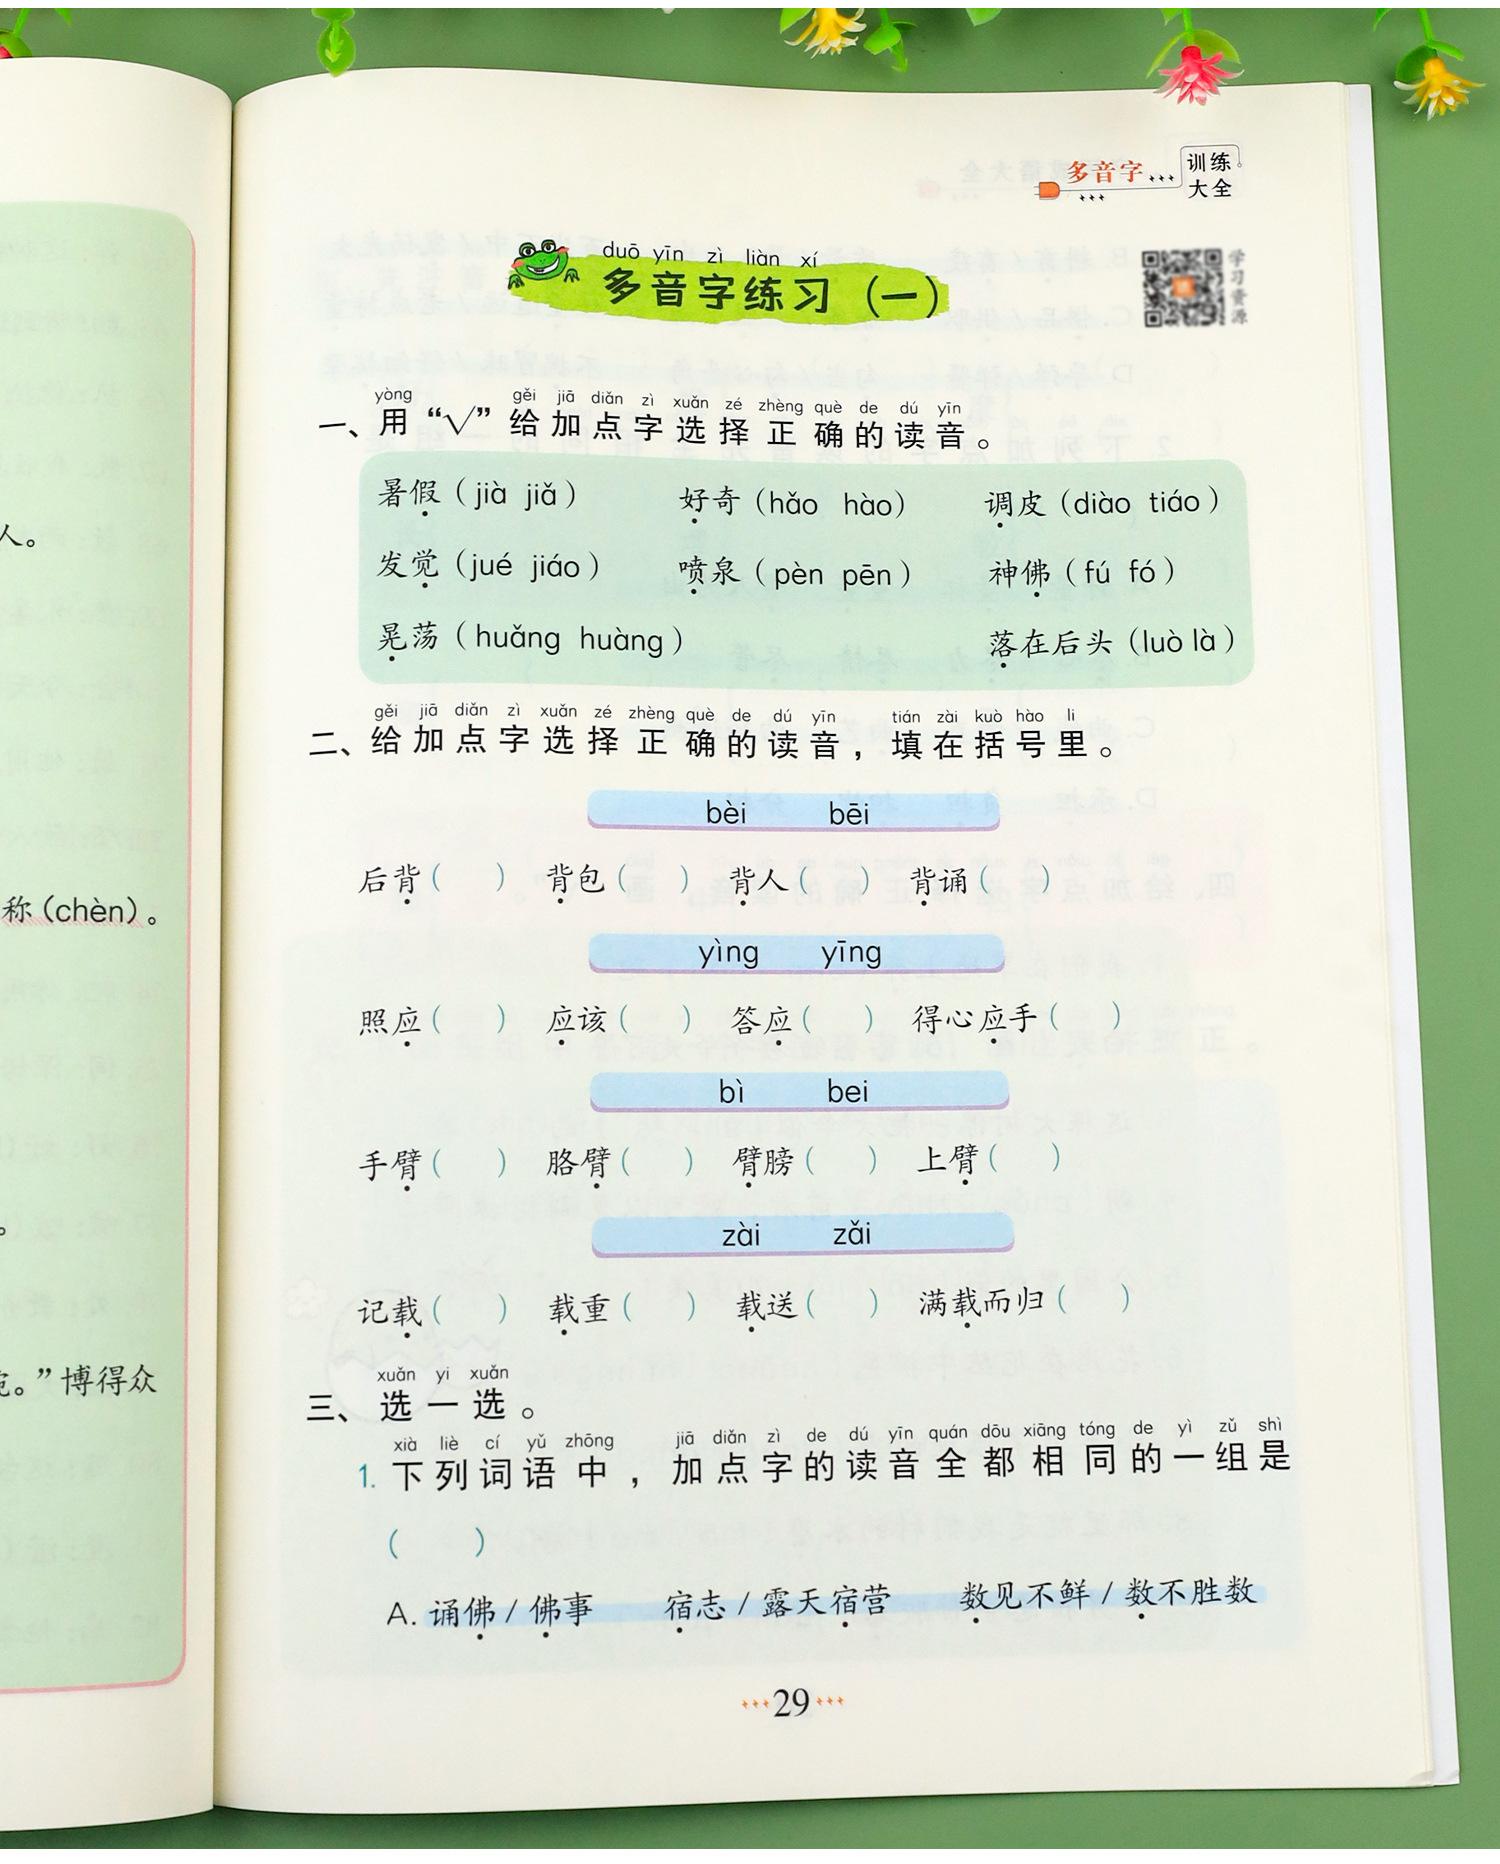 人。
称(chèn)。
。
。”博得众
多音字
训练
大全
学习资源
duō yīn zì liàn xí
多音字练习(一)
yòng gěi jiā diǎn zì xuǎn zé zhèng què de dú yīn
一、用“√”给加点字选择正确的读音。
暑假(jià jiǎ) 好奇(hǎo hào) 调皮(diào tiáo)
发觉(jué jiáo) 喷泉(pèn pēn) 神佛(fú fó)
晃荡(huǎng huàng) 落在后头(luò là)
gěi jiā diǎn zì xuǎn zé zhèng què de dú yīn tián zài kuò hào li
二、给加点字选择正确的读音，填在括号里。
bèi bēi
后背( ) 背包( ) 背人( ) 背诵( )
yìng yīng
照应( ) 应该( ) 答应( ) 得心应手( )
bì bei
手臂( ) 胳臂( ) 臂膀( ) 上臂( )
zài zǎi
记载( ) 载重( ) 载送( ) 满载而归( )
xuǎn yi xuǎn
三、选一选。
xià liè cí yǔ zhōng jiā diǎn zì de dú yīn quán dōu xiāng tóng de yì zǔ shì
1.下列词语中，加点字的读音全都相同的一组是
( )
A.诵佛/佛事 宿志/露天宿营 数见不鲜/数不胜数
29